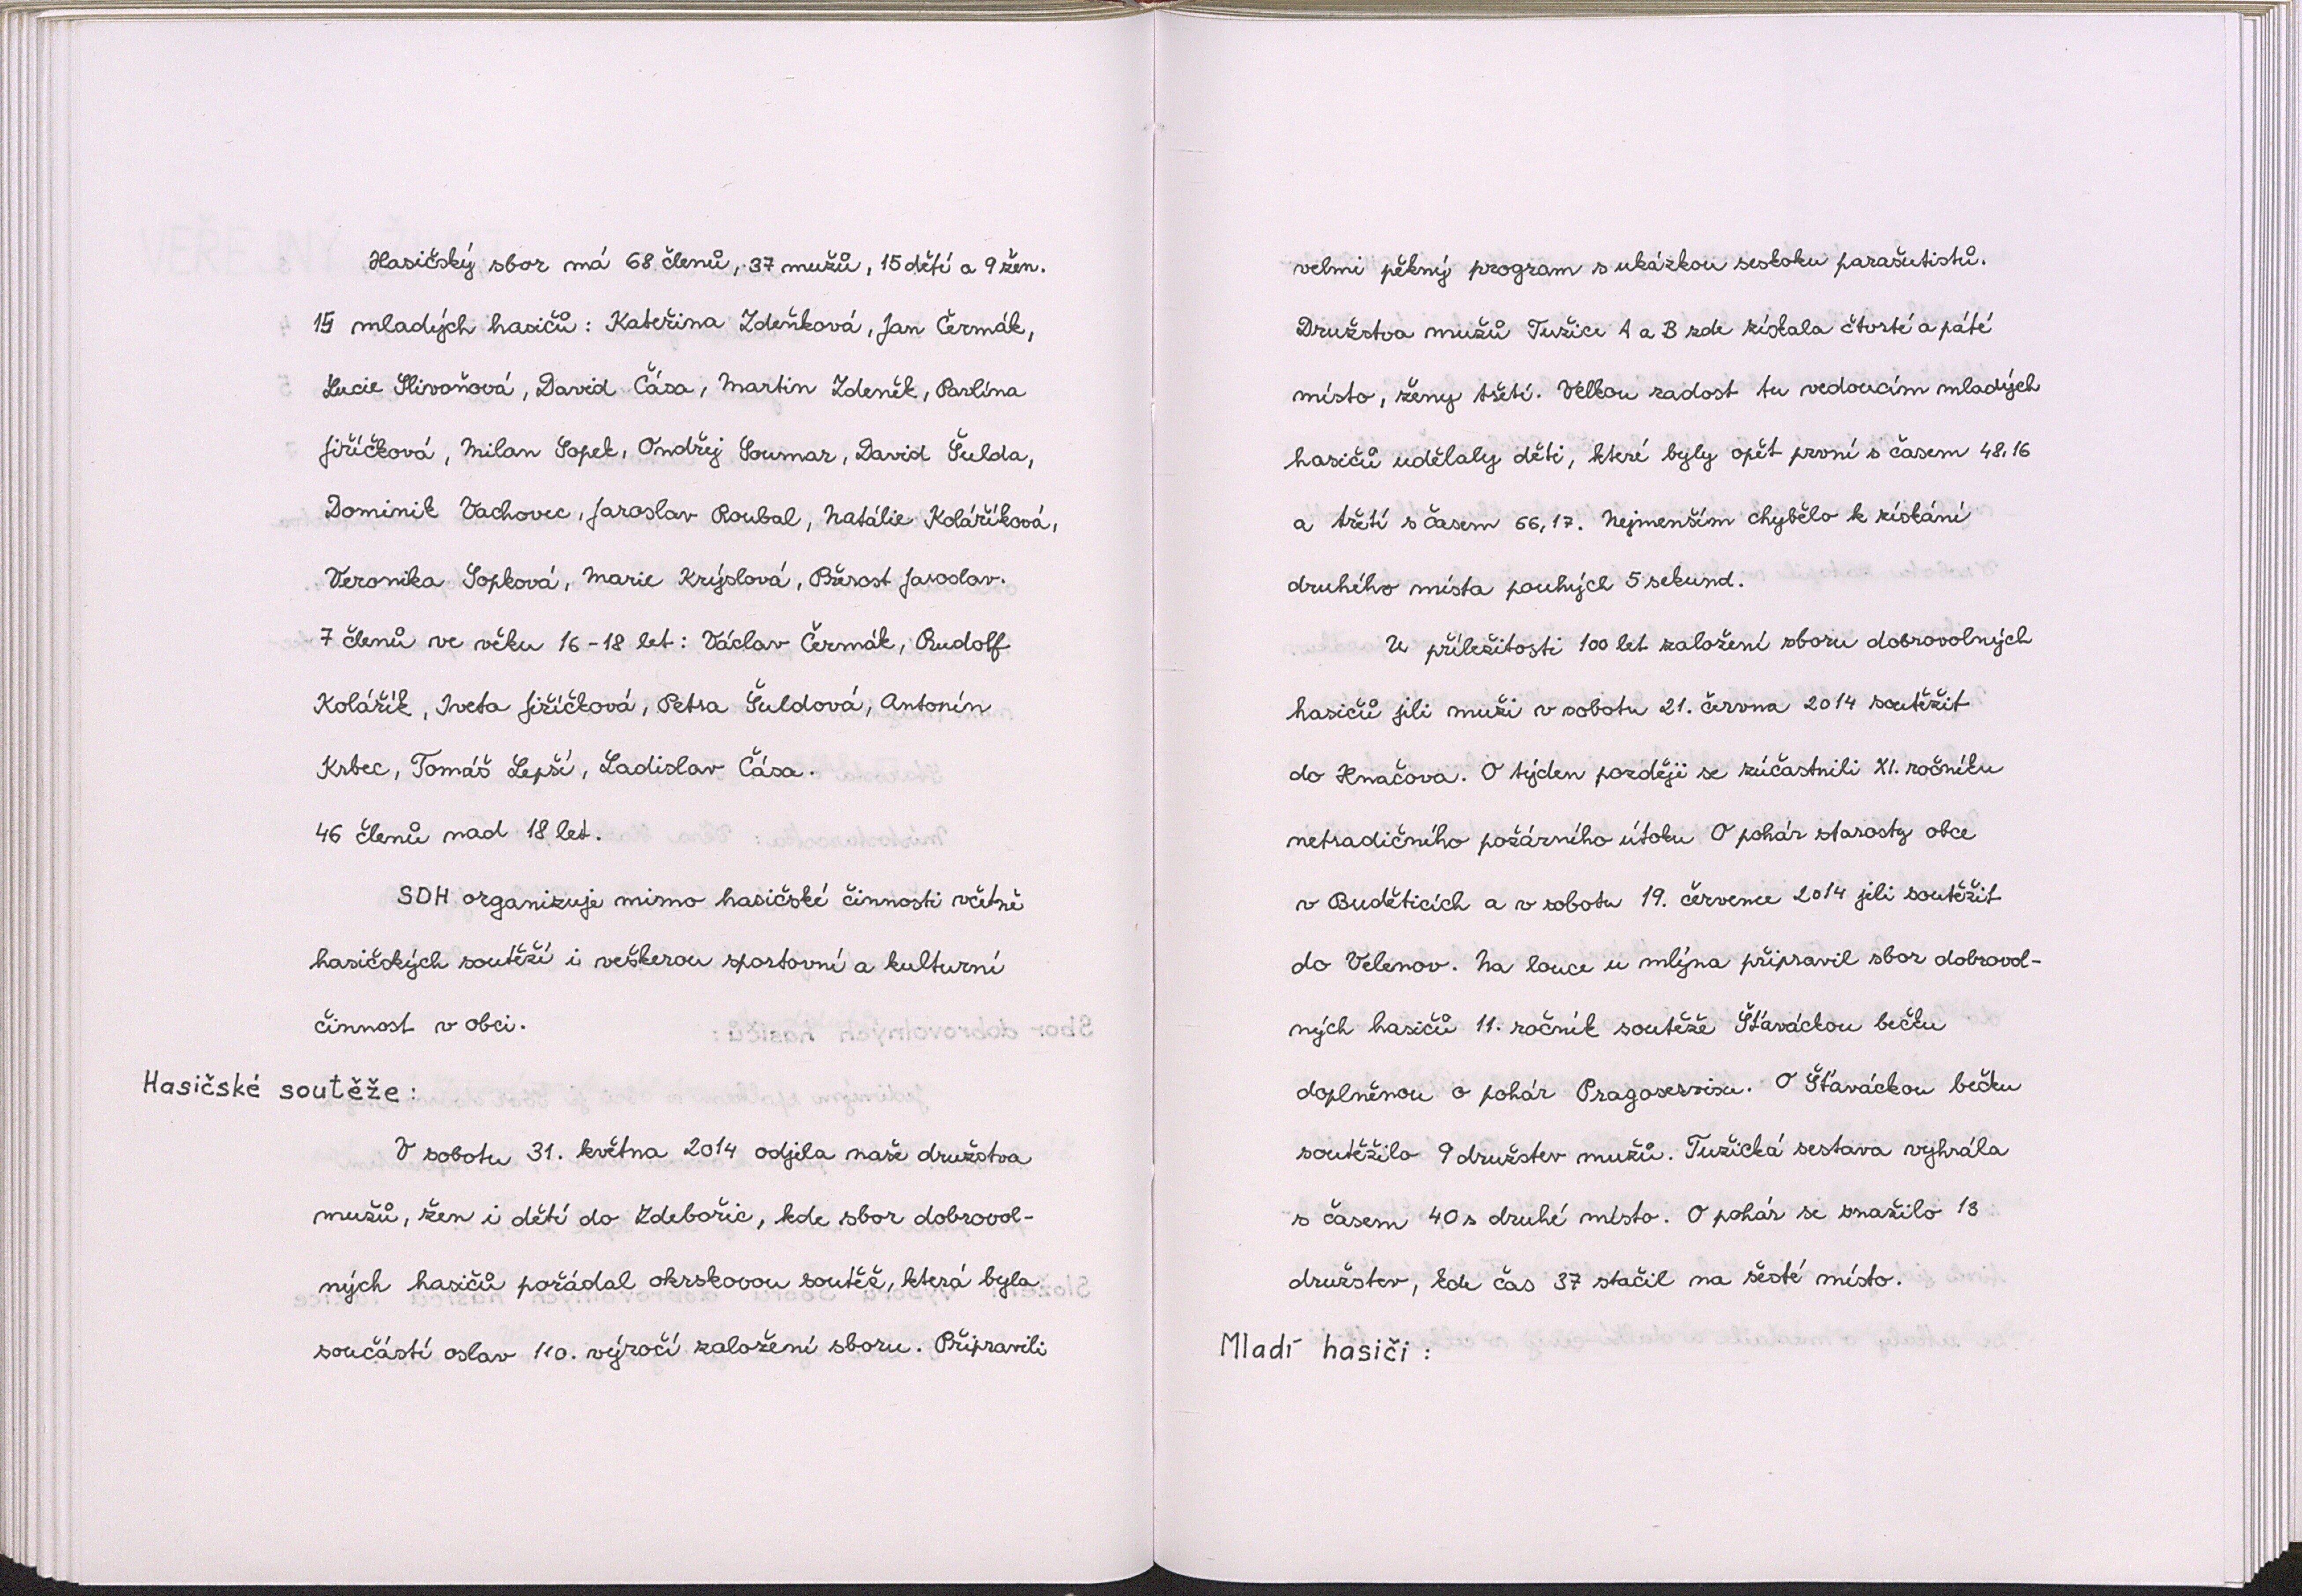 Hasičský sbor má 68 členů, 37 mužů, 15 dětí a 9 žen.
15 mladých hasičů: Kateřina Zdeňková, Jan Čermák,
Lucie Slivoňová, David Čása, Martin Zdeněk, Pavlína
Jiříčková, Milan Sopek, Ondřej Soumar, David Šulda,
Dominik Vachovec, Jaroslav Roubal, Natálie Koláříková,
Veronika Sopková, Marie Krýslová, Přerost Jaroslav.
7 členů ve věku 16-18 let: Václav Čermák, Rudolf
Kolářík, Iveta Jiříčková, Petra Šuldová, Antonín
Krbec, Tomáš Lepší, Ladislav Čása.
46 členů nad 18 let.
SDH organizuje mimo hasičské činnosti včetně
hasičských soutěží i veškerou sportovní a kulturní
činnost v obci.
Hasičské soutěže:
V sobotu 31. května 2014 odjela naše družstva
mužů, žen i dětí do Zdebořic, kde sbor dobrovol-
ných hasičů pořádal okrskovou soutěž, která byla
součástí oslav 110. výročí založení sboru. Připravili
velmi pěkný program s ukázkou seskoku parašutistů.
Družstva mužů Tužice A a B zde získala čtvrté a páté
místo, ženy třetí. Velkou radost tu vedoucím mladých
hasičů udělaly děti, které byly opět první s časem 48,16
a třetí s časem 66,17. Nejmenším chybělo k získání
druhého místa pouhých 5 sekund.
U příležitosti 100 let založení sboru dobrovolných
hasičů jeli muži v sobotu 21. června 2014 soutěžit
do Hnačova. O týden později se zúčastnili XI. ročníku
netradičního požárního útoku O pohár starosty obce
v Buděticích a v sobotu 19. července 2014 jeli soutěžit
do Velenov. Na louce u mlýna připravil sbor dobrovol-
ných hasičů 11. ročník soutěže Šťaváckou bečku
doplněnou o pohár Pragoservisu. O Šťaváckou bečku
soutěžilo 9 družstev mužů. Tužická sestava vyhrála
s časem 40 s druhé místo. O pohár se snažilo 13
družstev, kde čas 37 stačil na šesté místo.
Mladí hasiči: